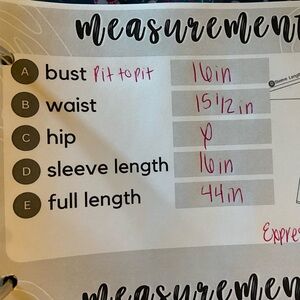 measurement
A bust Pit to pit 16in
B waist 15 1/2 in
C hip
D sleeve length 16in
E full length 44in
Expre
measuremen